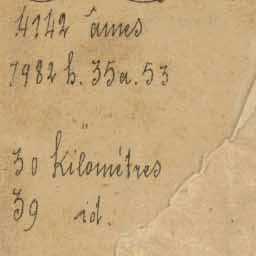 4142 âmes
7982 h. 35a. 53
"
30 Kilométres
39 id.